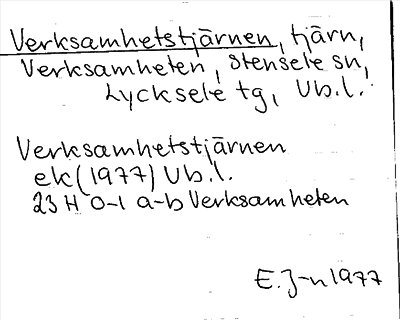 Verksamhetstjärnen, tjärn,
Verksamheten, Stensele sn,
Lycksele tg, Vb.l.
Verksamhetstjärnen
ek (1977) Vb.l.
23 H 0-1 a-b Verksamheten
E.J-n 1977